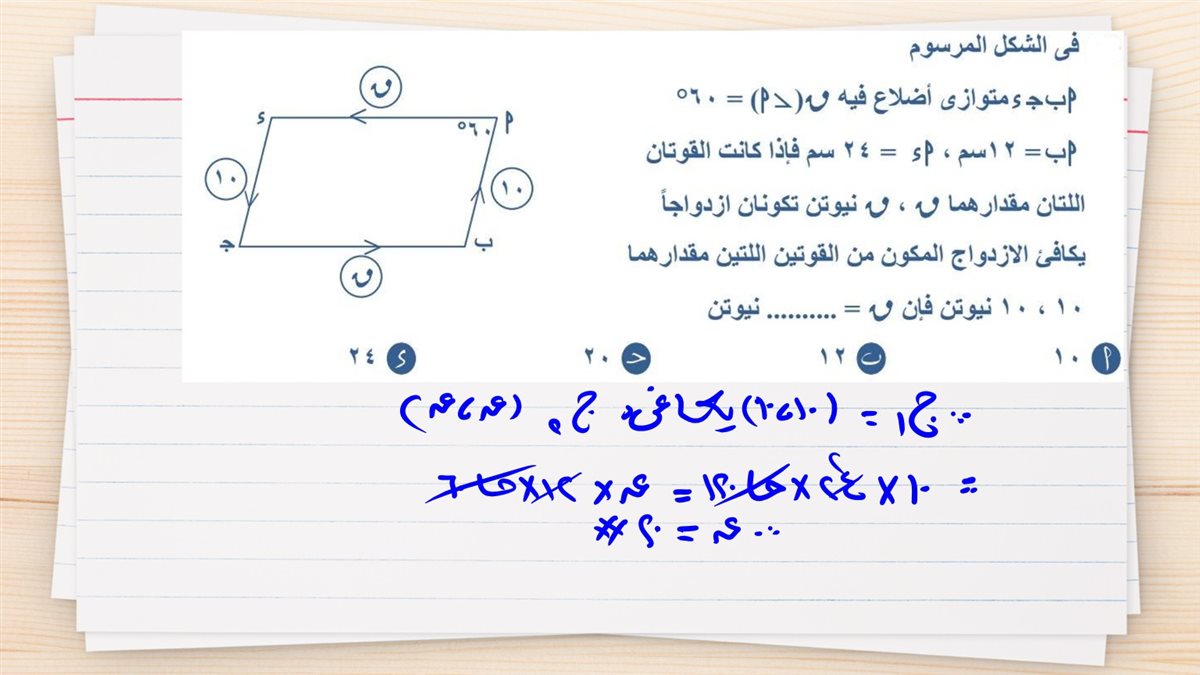 فى الشكل المرسوم
اب جـ ء متوازى أضلاع فيه ق(ﮮ ا) = ٦٠°
اب = ١٢سم ، اء = ٢٤ سم فإذا كانت القوتان
اللتان مقدارهما ق ، ق نيوتن تكونان ازدواجاً
يكافئ الازدواج المكون من القوتين اللتين مقدارهما
١٠ ، ١٠ نيوتن فإن ق = .......... نيوتن
ا ١٠ ب ١٢ حـ ٢٠ ء ٢٤
ق
ء ٦٠° ا
١٠ ١٠
جـ ب
ق
∵ ج١ = (١٠،١٠) يكافئ ج٢ (ق،ق)
= ١٠ × ٢٤ × جا١٢٠ = ق × ١٢ × جا٦٠
∴ ق = ٢٠ #